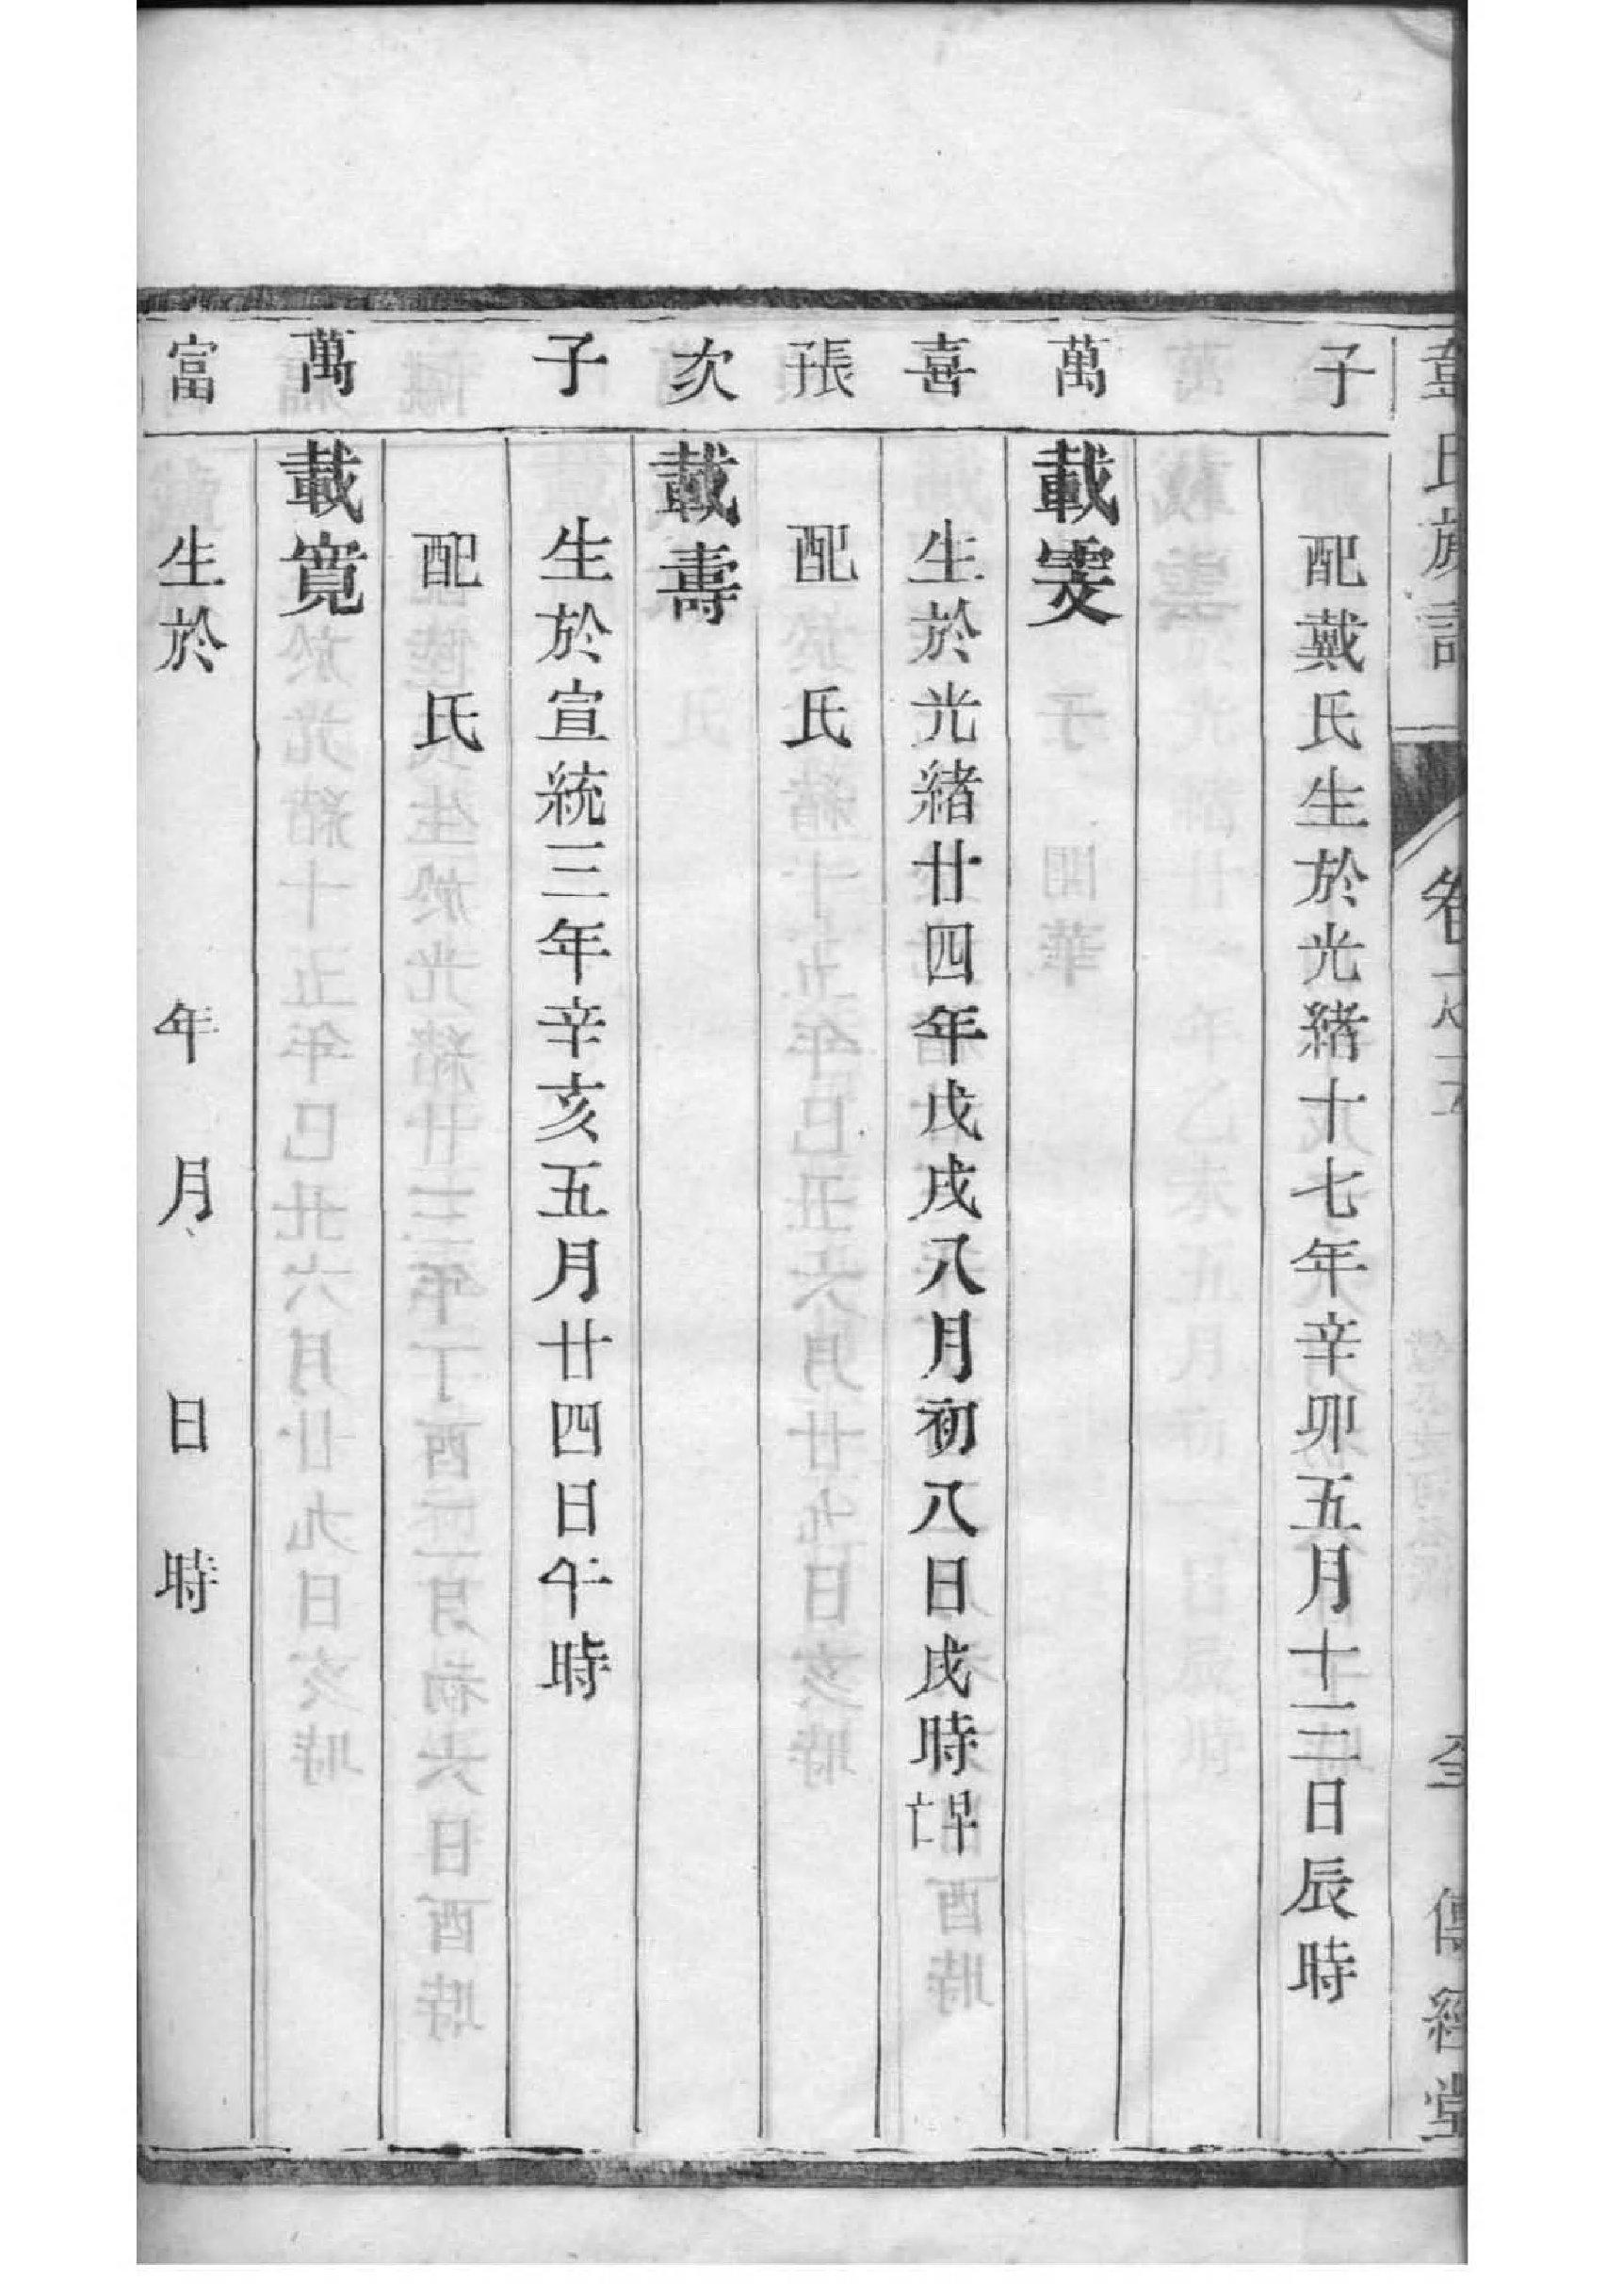 氏族譜 卷 傳經堂
子 配戴氏生於光緒十七年辛卯五月十三日辰時
萬 載雯
喜 生於光緒廿四年戊戌八月初八日戌時早亡
張 配 氏
次 載壽
子 生於宣統三年辛亥五月廿四日午時
配 氏
萬 載寬
富 生於 年 月 日 時